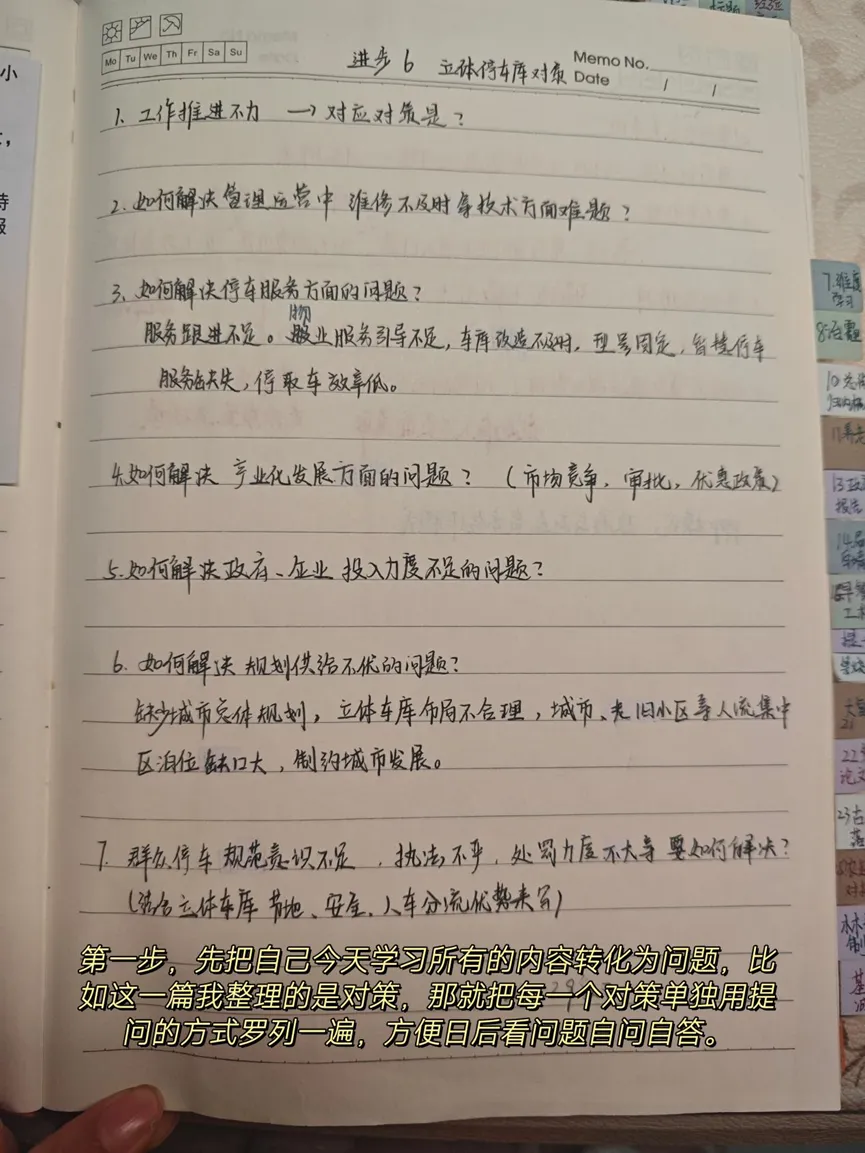 Mo Tu We Th Fr Sa Su
进步6 立体停车库对策
Memo No.
Date / /
1. 工作推进不力 → 对应对策是？
2. 如何解决管理运营中 维修不及时等技术方面难题？
3. 如何解决停车服务方面的问题？
服务跟进不足。物业服务引导不足，车库改造不及时，型号固定，智慧停车
服务缺失，停取车效率低。
4. 如何解决 产业化发展方面的问题？（市场竞争，审批，优惠政策）
5. 如何解决政府、企业 投入力度不足的问题？
6. 如何解决 规划供给不优的问题？
缺少城市总体规划，立体车库布局不合理，城市、老旧小区等人流集中
区泊位缺口大，制约城市发展。
7. 群众停车 规范意识不足，执法不严，处罚力度不大等 要如何解决？
（结合立体车库 节地、安全、人车分流优势来写）
第一步，先把自己今天学习所有的内容转化为问题，比
如这一篇我整理的是对策，那就把每一个对策单独用提
问的方式罗列一遍，方便日后看问题自问自答。
小
持
报
标题
学习
13
报告
14
工
22
论文
23古